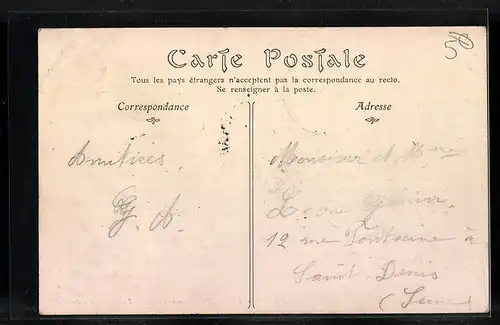 50
Carte Postale
Tous les pays étrangers n'acceptent pas la correspondance au recto.
Se renseigner à la poste.
Correspondance
Adresse
Amitiées
Monsieur et Mme
Léon
12 rue Fontaine à
Saint Denis
(Seine)